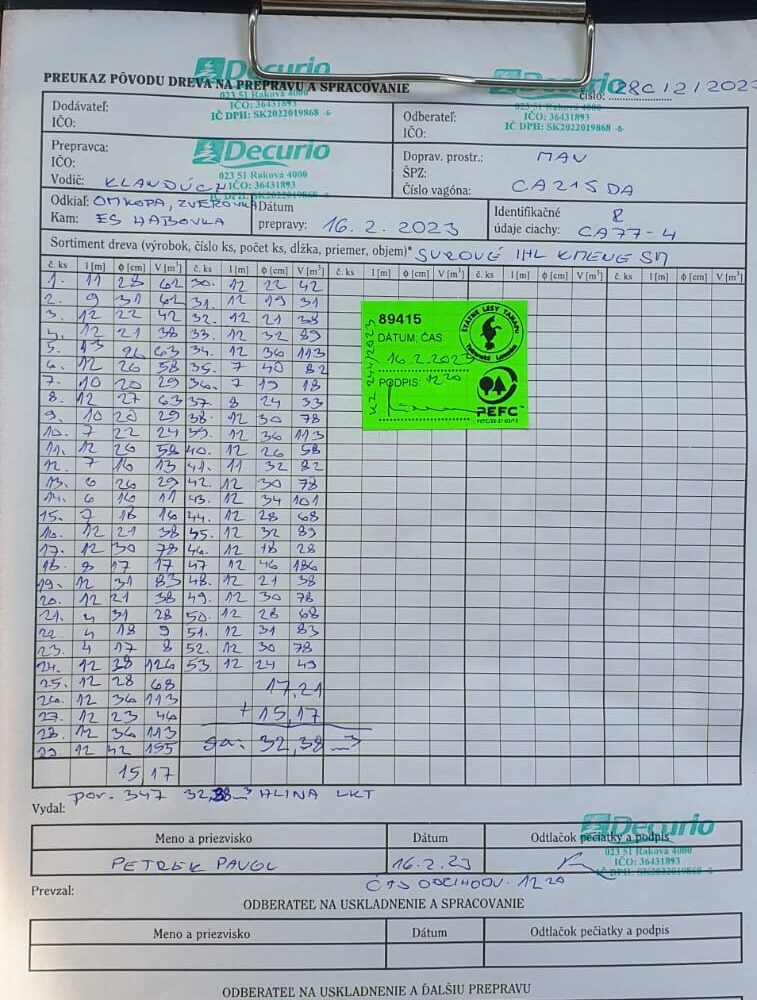 Decurio
023 51 Raková 4000
IČO: 36431893
IČ DPH: SK2022019868 -6-
Decurio
023 51 Raková 4000
IČO: 36431893
IČ DPH: SK2022019868 -6-
PREUKAZ PÔVODU DREVA NA PREPRAVU A SPRACOVANIE
číslo: 28C 12 / 2023
Dodávateľ:
IČO:
Odberateľ:
IČO:
Decurio
023 51 Raková 4000
IČO: 36431893
IČ DPH: SK2022019868 -6-
Prepravca:
IČO:
Vodič: KLANDÚCH
Doprav. prostr.: MAN
ŠPZ:
Číslo vagóna: CA215DA
Odkiaľ: OM KOPA, ZVEROVKA
Kam: ES HABOVKA
Dátum
prepravy: 16.2.2023
Identifikačné R
údaje ciachy: CA77-4
Sortiment dreva (výrobok, číslo ks, počet ks, dĺžka, priemer, objem)* SUROVÉ IHL KMENE SM
č. ks l [m] ϕ [cm] V [m³] č. ks l [m] ϕ [cm] V [m³] č. ks l [m] ϕ [cm] V [m³] č. ks l [m] ϕ [cm] V [m³] č. ks l [m] ϕ [cm] V [m³]
1. 11 28 62 30. 12 22 42
2. 9 31 62 31. 12 19 31
3. 12 22 42 32. 12 21 38
4. 12 21 38 33. 12 32 89
5. 13 26 63 34. 12 36 113
6. 12 26 58 35. 7 40 82
7. 10 20 29 36. 7 19 18
8. 12 27 63 37 8 24 33
9. 10 20 29 38. 12 30 78
10. 7 22 24 39. 12 36 113
11. 12 26 58 40. 12 26 58
12. 7 16 13 41. 11 32 82
13. 6 26 29 42. 12 30 78
14. 6 16 11 43. 12 34 101
15. 7 18 16 44. 12 28 68
16. 12 21 38 45. 12 32 89
17. 12 30 78 46. 12 18 28
18. 8 17 17 47 12 46 186
19. 12 31 83 48. 12 21 38
20. 12 21 38 49. 12 30 78
21. 4 31 28 50. 12 28 68
22. 4 18 9 51. 12 31 83
23. 4 17 8 52. 12 30 78
24. 12 38 126 53. 12 24 49
25. 12 28 68 17,21
26. 12 36 113
27. 12 23 46 + 15,17
28. 12 36 113
29 12 42 155 32,38
15,17
89415
DÁTUM, ČAS:
16.2.2023
PODPIS: 12 20
244/2023
ŠTÁTNE LESY TANAPU
Tatranská Lomnica
PEFC
por. 347 32,38 HLINA LKT
Vydal:
Meno a priezvisko Dátum Odtlačok pečiatky a podpis
PETREK PAVOL 16.2.23
Decurio
023 51 Raková 4000
IČO: 36431893
IČ DPH: SK2022019868 -6-
Prevzal:
ČAS ODCHODU. 12 20
ODBERATEĽ NA USKLADNENIE A SPRACOVANIE
Meno a priezvisko Dátum Odtlačok pečiatky a podpis
ODBERATEĽ NA USKLADNENIE A ĎALŠIU PREPRAVU